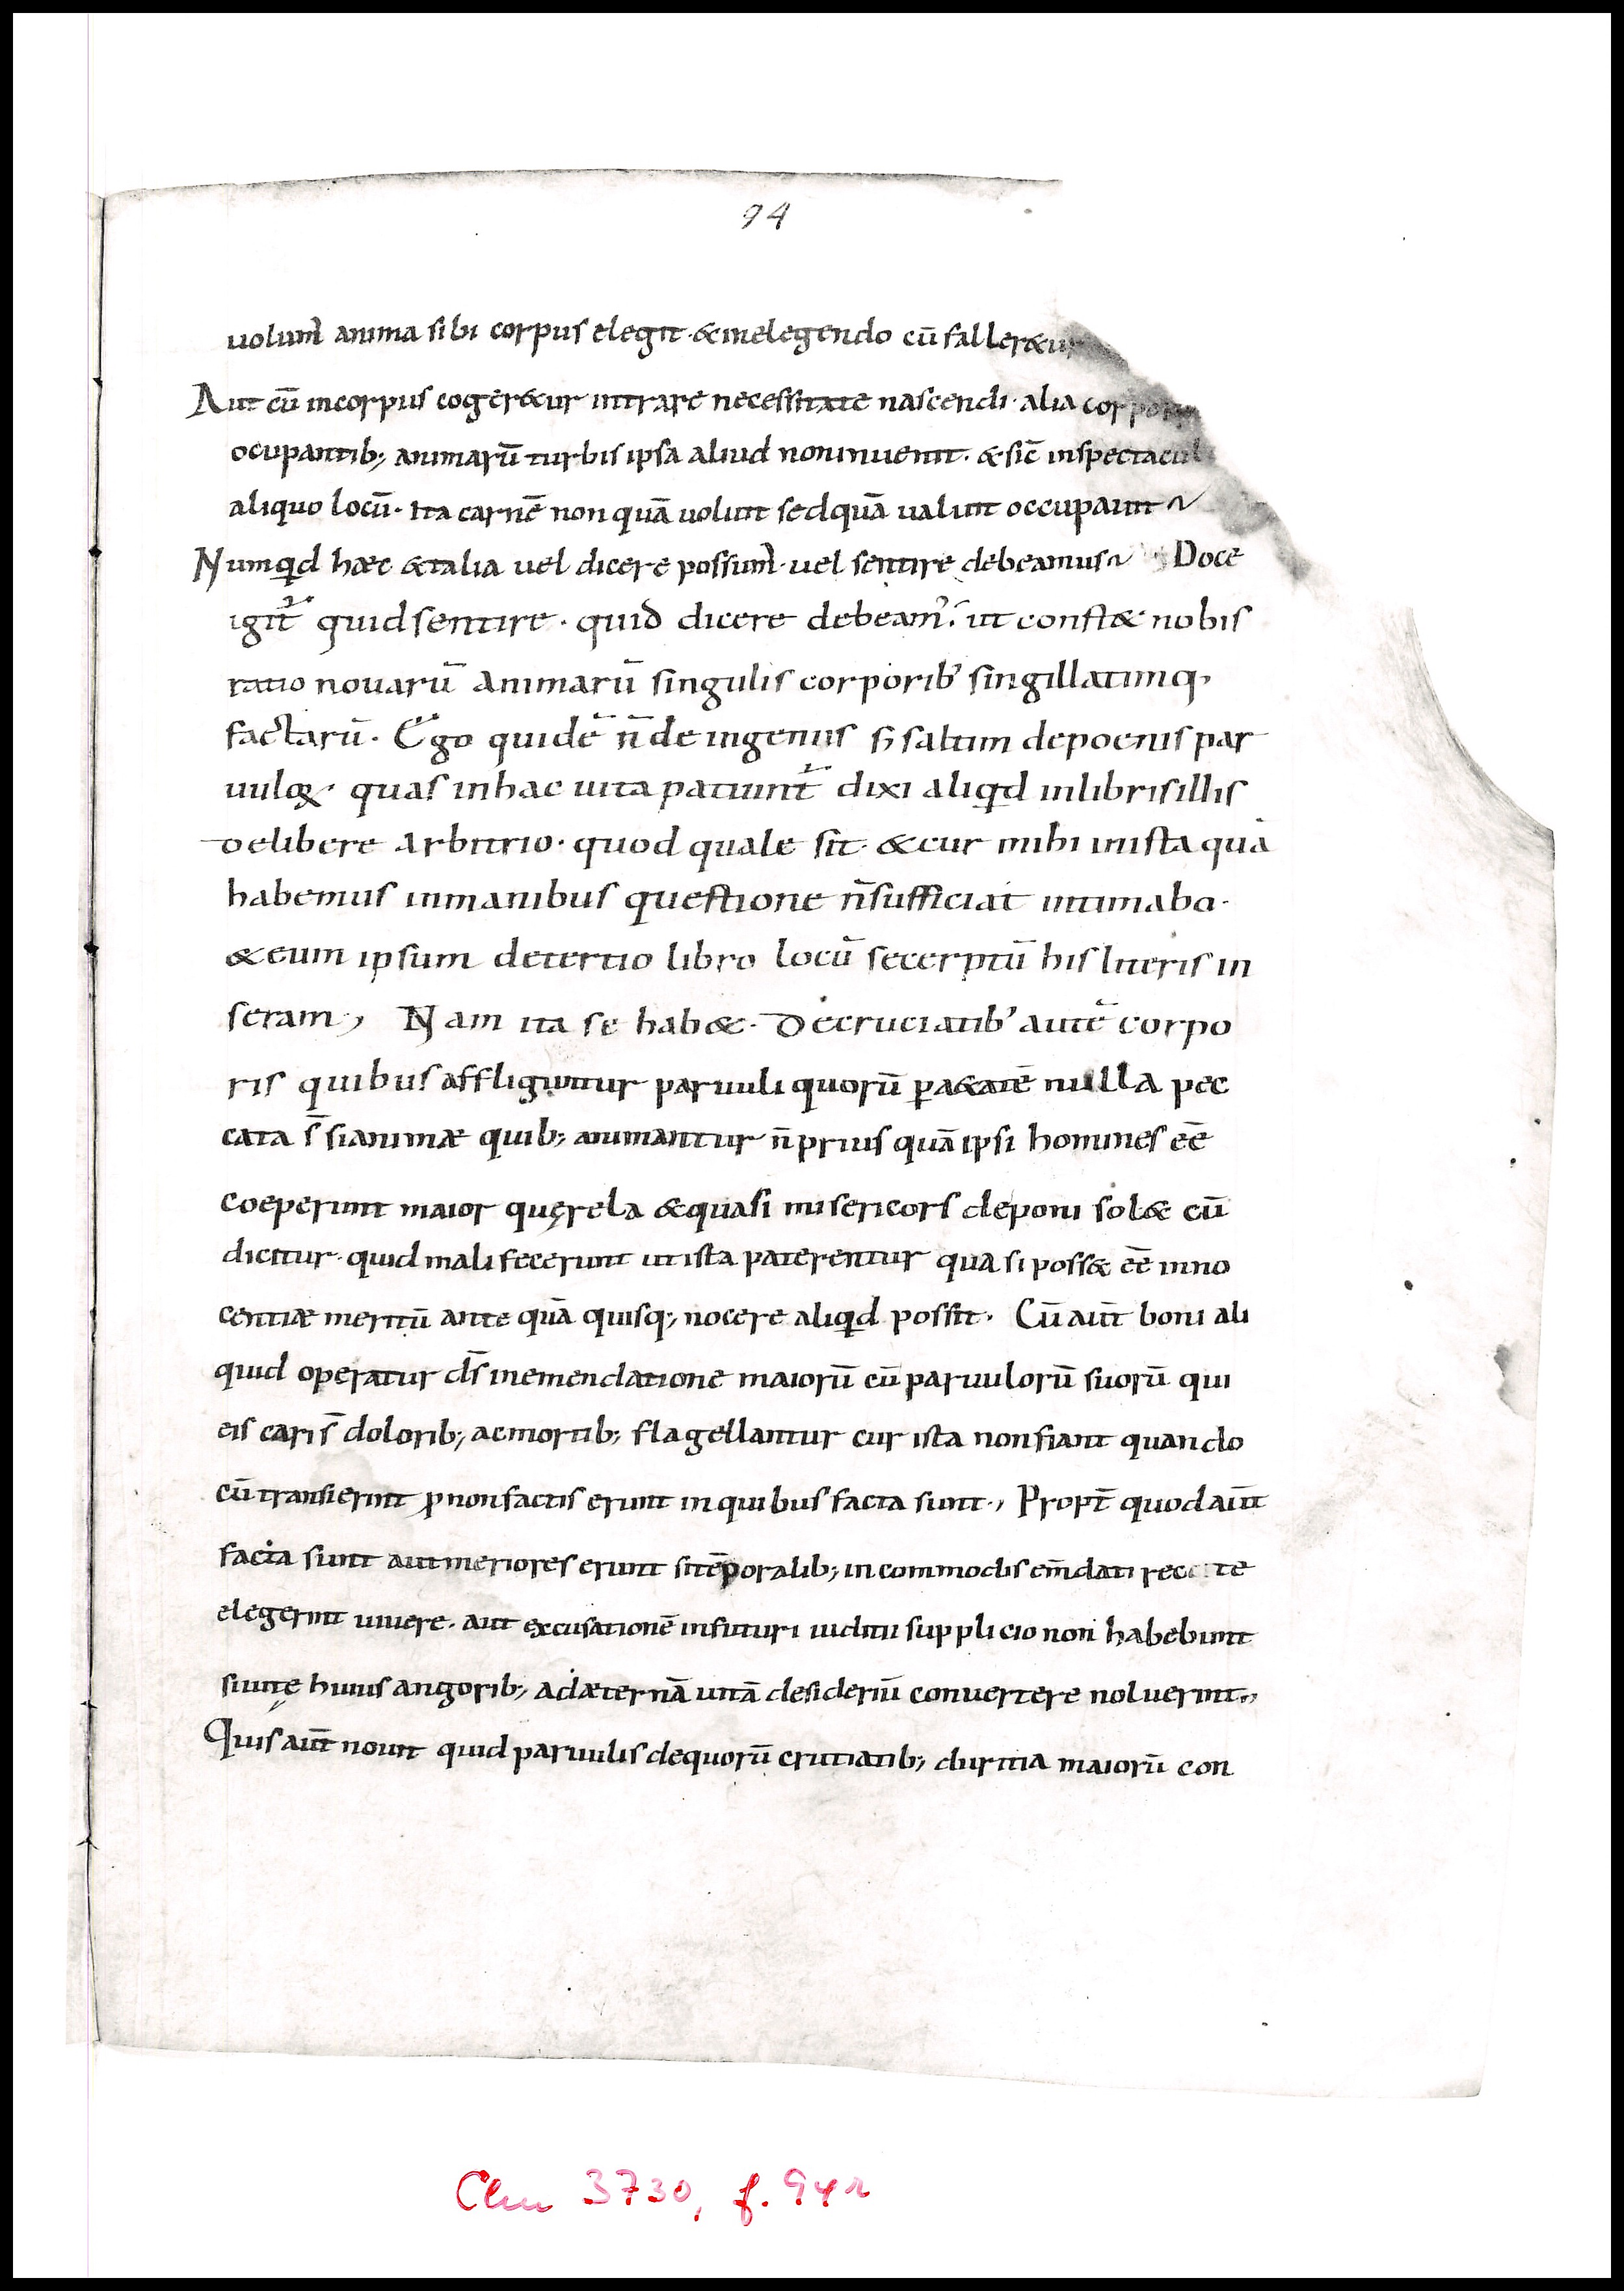 94
uolum̉ anima sibi corpus elegit · & inelegendo cū faller&ur
Aut cū incorpus coger&ur intrare necessitate nascendi · alia corpora
ocupantib; animarū turbis ipsa aliud noninuenit · & sic̄ inspectacul
aliquo locū · ita carnē non quā voluit sedquā valuit occupauit
Numqd hæc &talia vel dicere possum̉ · vel sentire debeamus Doce
igit̄ quid sentire · quid dicere debeam̉ · ut const& nobis
ratio novarū animarū singulis corporib; singillatimq,
factarū · Ego quidē n̄ de ingeniis s; saltim depoenis par
vuloꝝ · quas inhac uita patiunt̄ dixi aliqd inlibris illis
delibere arbitrio · quod quale sit · &cur mihi inista quā
habemus inmanibus questione n̄ sufficiat intimabo ·
&eum ipsum detertio libro locū secerptū his literis in
seram; Nam ita se hab& · Decruciatib; autē corpo
ris quibus affliguntur paruuli quorū p̄ a&atē nulla pec
cata s̄ si animæ quib; animantur n̄ prius quā ipsi homines eē
coeperunt maior quęrela &quasi misericors deponi sol& cū
dicitur · quid mali fecerunt ut ista paterentur quasi poss& eē inno
centiæ meritū ante quā quisq; nocere aliqd possit · Cū aūt boni ali
quid operatur ds̄ inemendatione maiorū cū paruulorū suorū qui
eis cari s̄ dolorib; acmortib; flagellantur cur ista nonfiant quando
cū transierint ꝓnonfactis erunt in quibus facta sunt ·, Propt̄ quod aūt
facta sunt aut meriores erunt sitēporalib; incommodis em̄dati rec te
elegerint uiuere · aut excusationē infuturi iuditii supplicio non habebunt
siuitę huius angorib; adæternā uitā desideriū convertere noluerint ·,,
Quis aūt nouit quid paruulis dequorū crutiatib; duritia maiorū con
Clm 3730, f. 94r